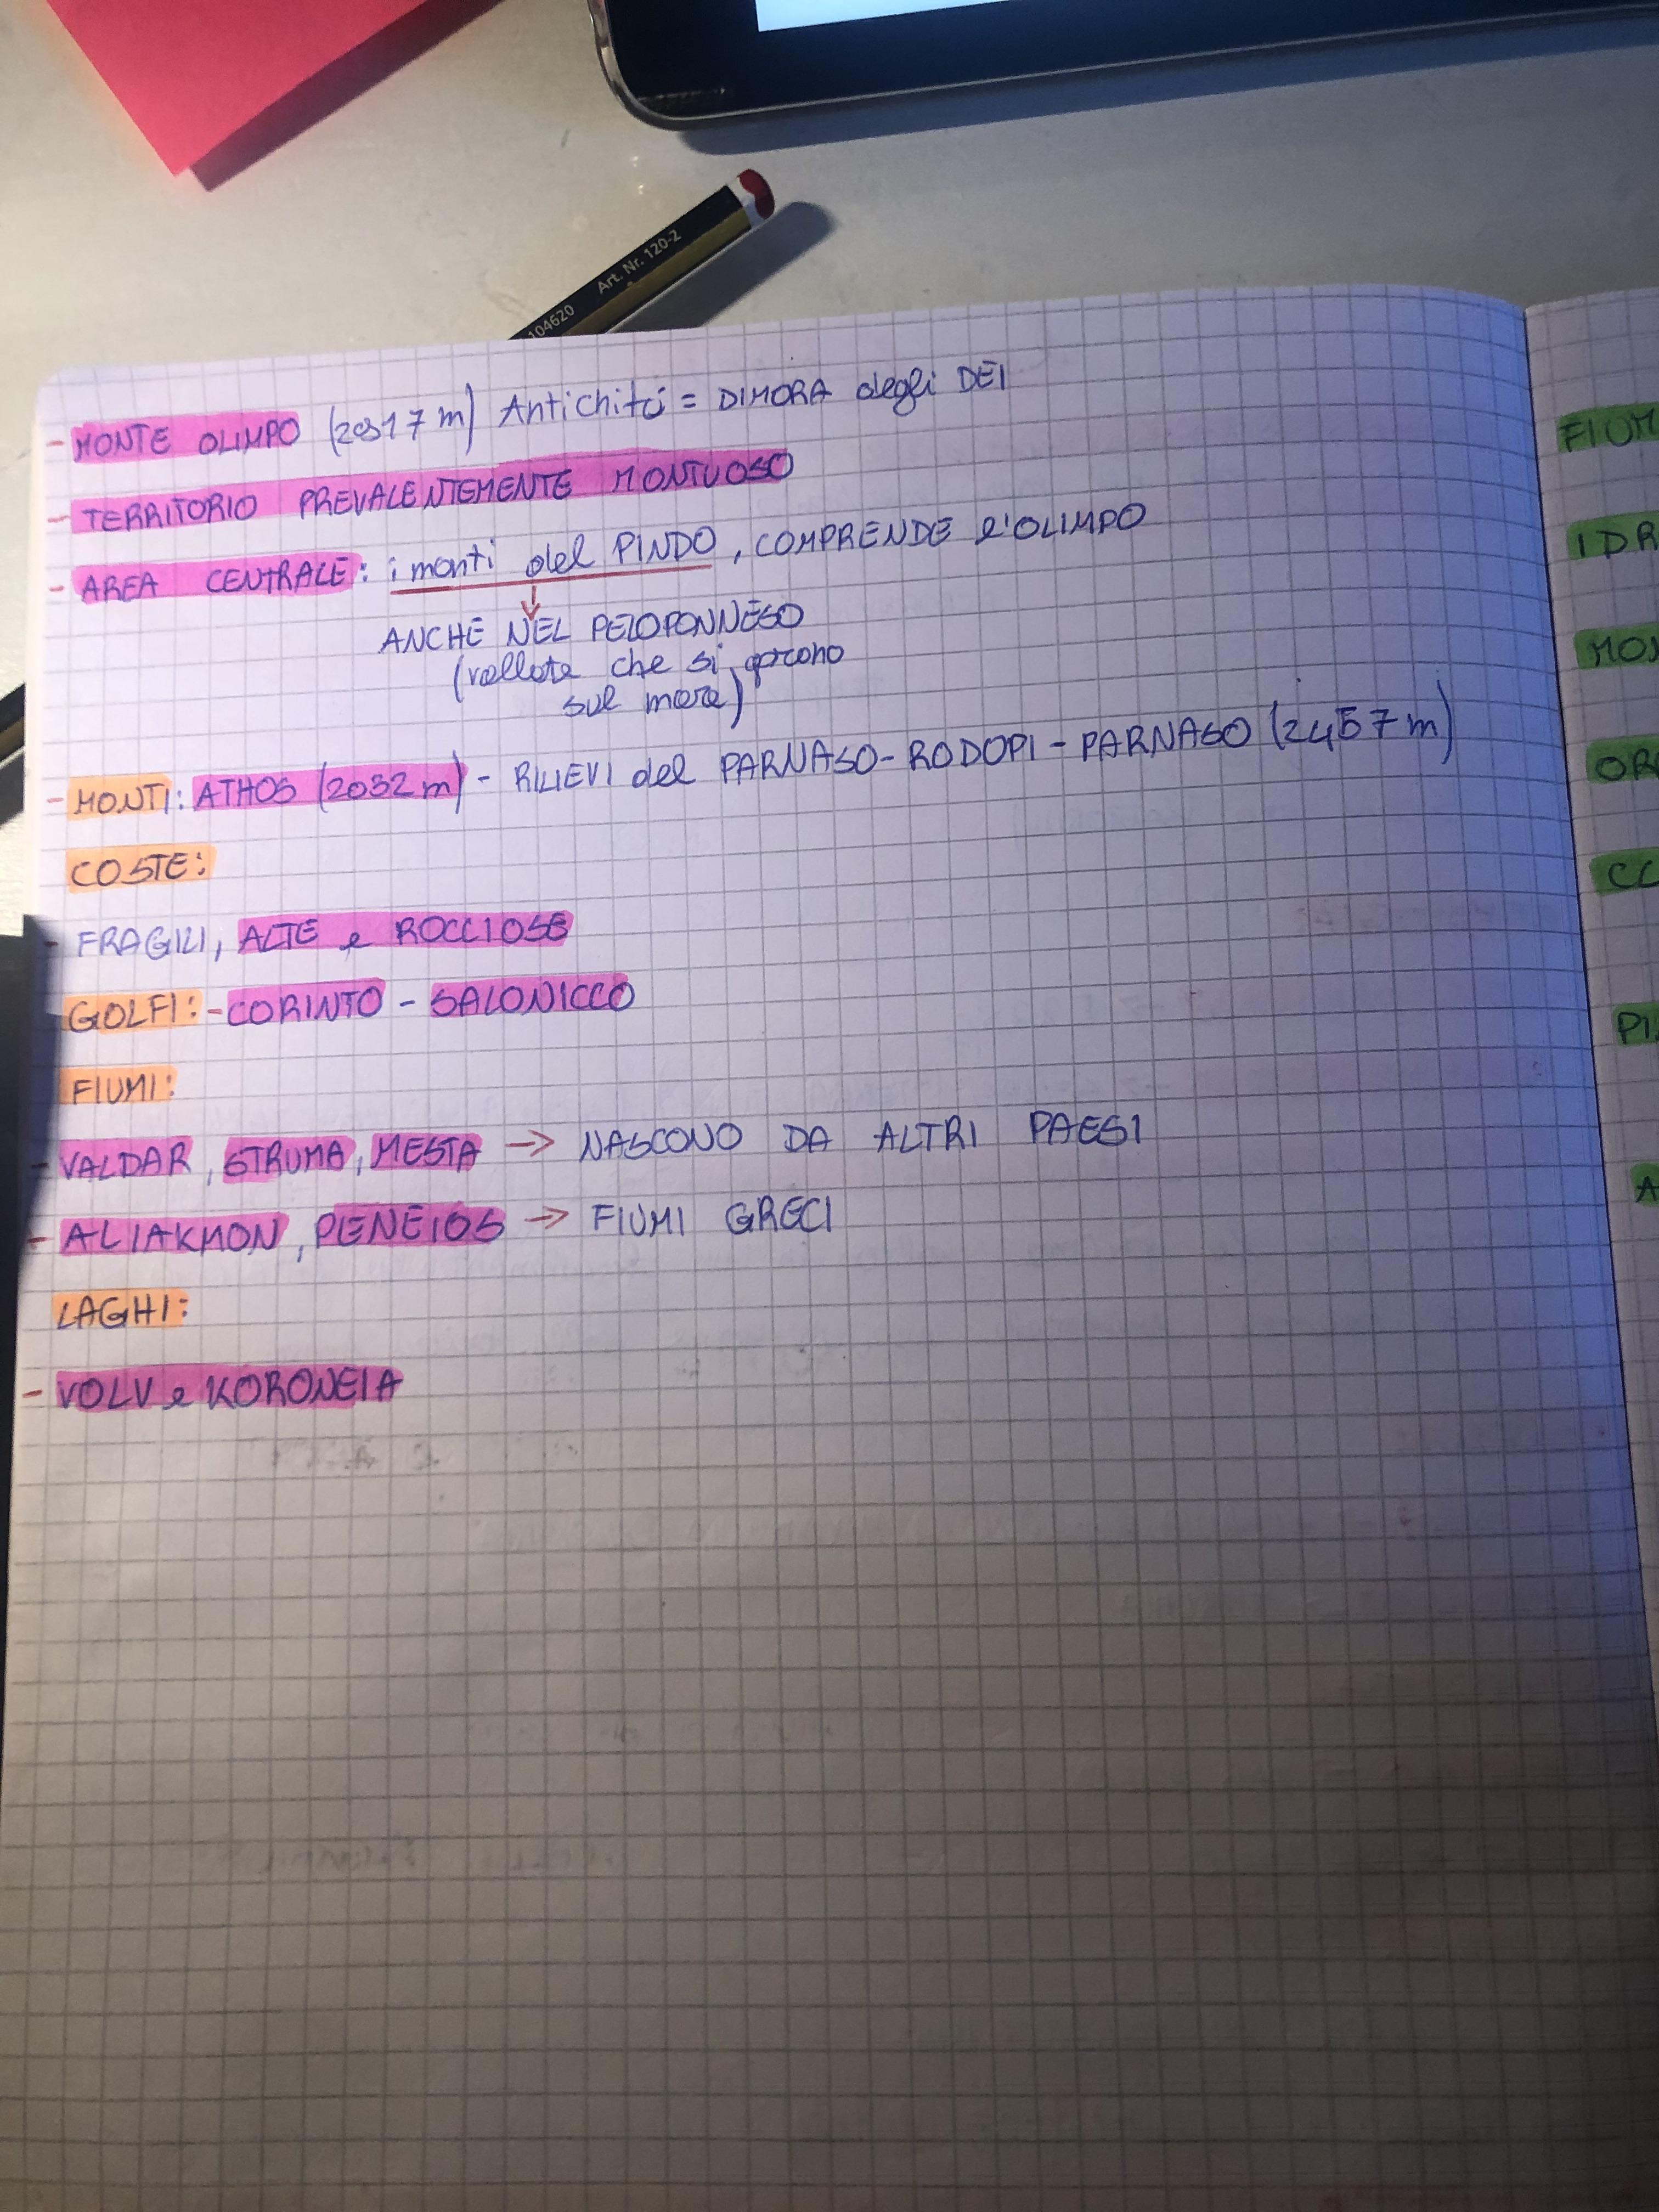 104620 Art. Nr. 120-2
- MONTE OLIMPO (2917 m) Antichità = DIMORA degli DEI
- TERRITORIO PREVALENTEMENTE MONTUOSO
- AREA CENTRALE: i monti del PINDO, COMPRENDE l'OLIMPO
↓
ANCHE NEL PELOPONNESO
(vallate che si aprono
sul mare)
- MONTI: ATHOS (2032 m) - RILIEVI del PARNASO - RODOPI - PARNASO (2457 m)
COSTE:
- FRAGILI, ALTE e ROCCIOSE
GOLFI: - CORINTO - SALONICCO
FIUMI:
- VALDAR, STRUMA, MESTA → NASCONO DA ALTRI PAESI
- ALIAKMON, PENEIOS → FIUMI GRECI
LAGHI:
- VOLV e KORONEIA
FIUM
IDR
MON
OR
CO
PI
A